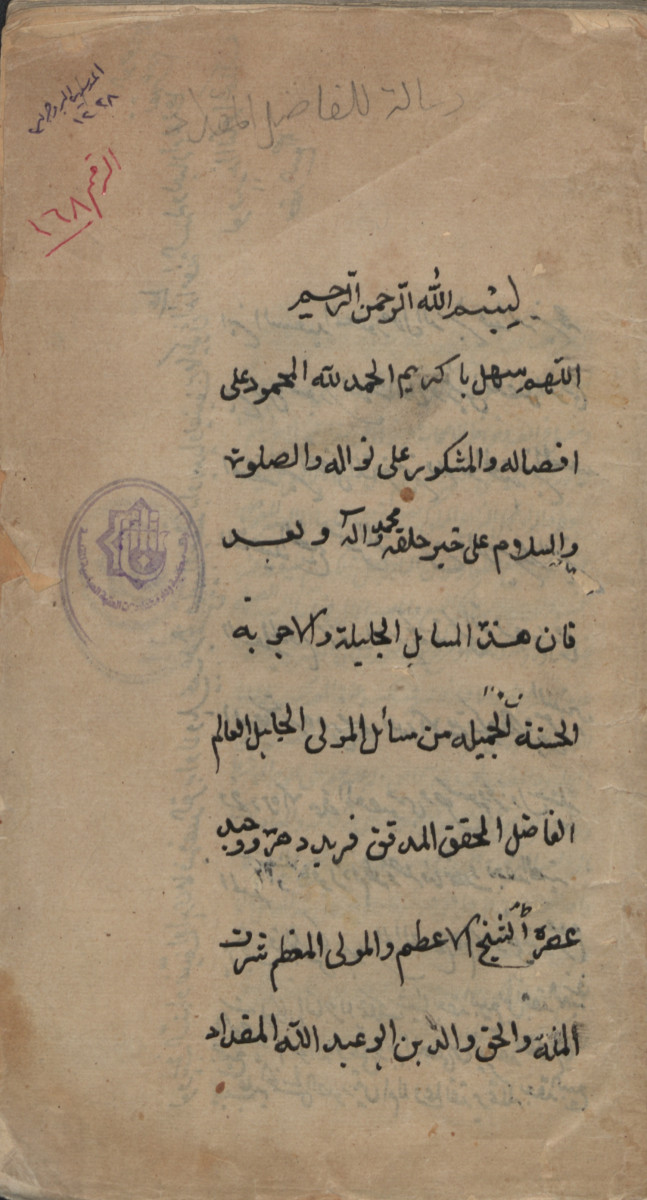 رسالة للفاضل المقداد
١٢٢٨
الرقم ١٦٨
بسم الله الرحمن الرحيم
اللهم سهل يا كريم الحمد لله المحمود على
افضاله والمشكور على نواله والصلوة
والسلام على خير خلقه محمد وآله وبعد
فان هذه المسايل الجليلة والاجوبة
الحسنة الجميله من مسائل المولى الجليل العالم
الفاضل المحقق المدقق فريد دهره ووحيد
عصره الشيخ الاعظم والمولى المعظم شرف
الملة والحق والدين ابو عبد الله المقداد